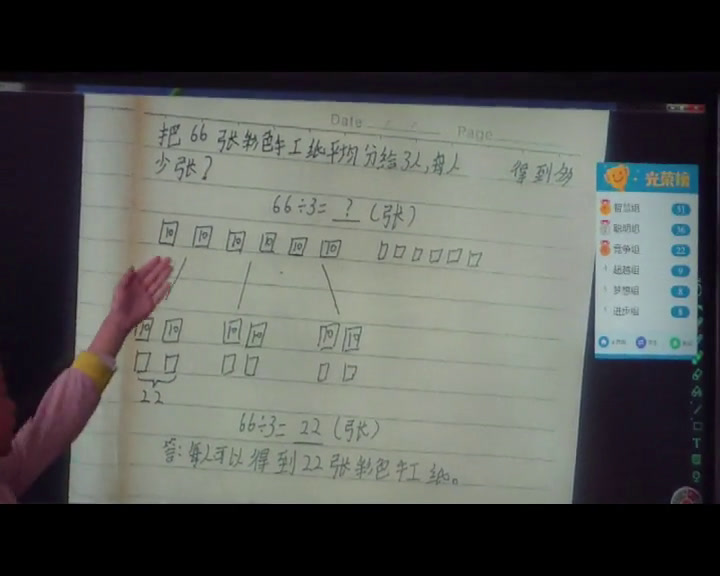 Date
Page
把66张彩色手工纸平均分给3人,每人 得到多
少张?
66÷3= ? (张)
10 10 10 10 10 10
10 10 10 10 10 10
22
66÷3= 22 (张)
答:每人可以得到22张彩色手工纸。
光荣榜
智慧组 51
聪明组 36
竞争组 22
超越组 9
梦想组 8
进步组 8